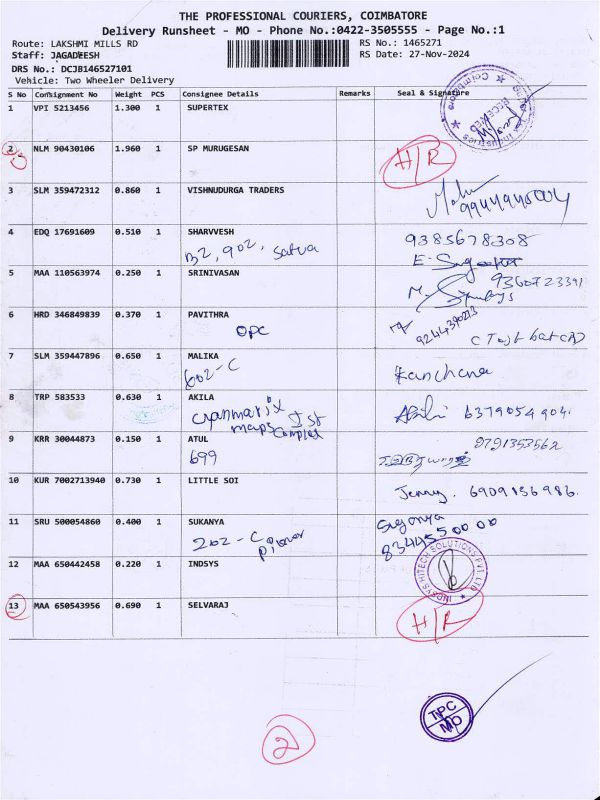 THE PROFESSIONAL COURIERS, COIMBATORE
Delivery Runsheet - MO - Phone No.:0422-3505555 - Page No.:1
Route: LAKSHMI MILLS RD
RS No.: 1465271
Staff: JAGADEESH
RS Date: 27-Nov-2024
DRS No.: DCJB146527101
Vehicle: Two Wheeler Delivery
S No Consignment No Weight PCS Consignee Details Remarks Seal & Signature
1 VPI 5213456 1.300 1 SUPERTEX
RECEIVED
Coimbatore
2 NLM 90430106 1.960 1 SP MURUGESAN H/R
3 SLM 359472312 0.860 1 VISHNUDURGA TRADERS
4 EDQ 17691609 0.510 1 SHARVVESH 9385678308
B2, 902, Satva
5 MAA 110563974 0.250 1 SRINIVASAN 9360723391
6 HRD 346849839 0.370 1 PAVITHRA 9244390213
OPC
7 SLM 359447896 0.650 1 MALIKA Kanchana
602-C
8 TRP 583533 0.630 1 AKILA 6379054904.
maps complex
9 KRR 30044873 0.150 1 ATUL 9791353562
699
10 KUR 7002713940 0.730 1 LITTLE SOI Jenny. 6909136986.
11 SRU 500054860 0.400 1 SUKANYA 8344550000
202-C
12 MAA 650442458 0.220 1 INDSYS
INDSYS HITECH SOLUTIONS PVT. LTD
13 MAA 650543956 0.690 1 SELVARAJ H/R
TPC
MO
2